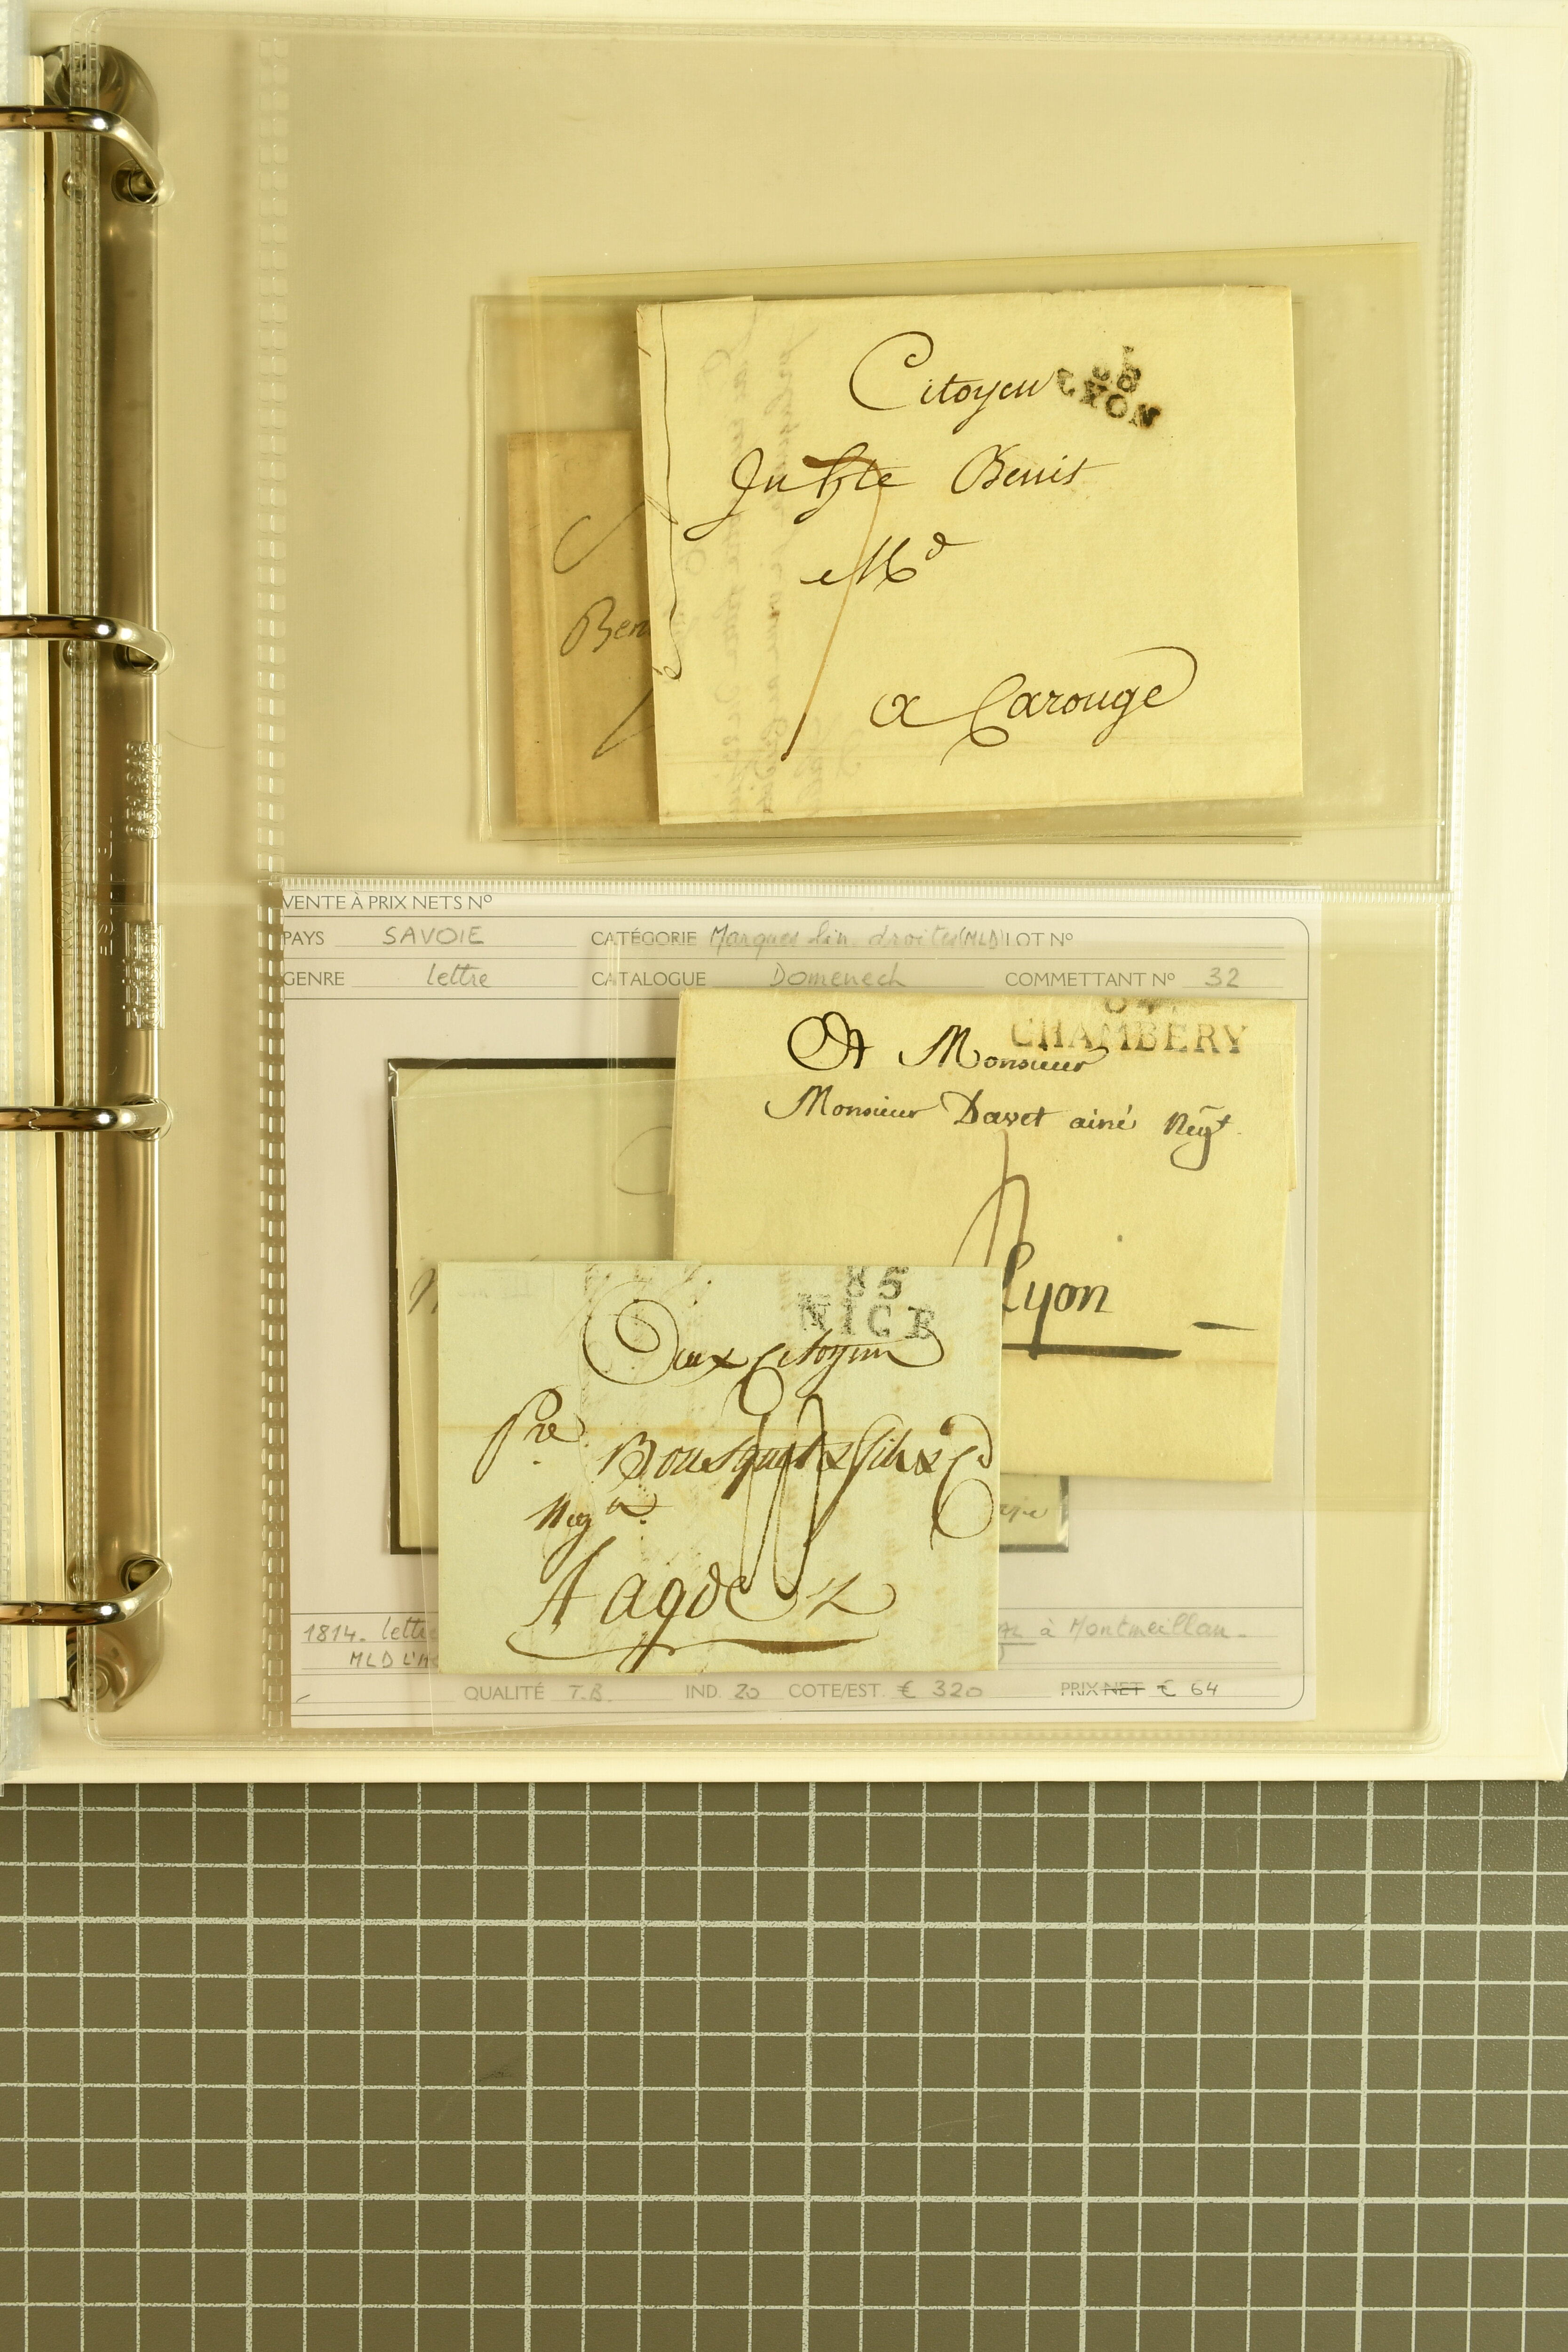 Citoyen
68
LYON
Juste Benit
Md
a Carouge
Ben
VENTE À PRIX NETS Nº
PAYS SAVOIE CATÉGORIE Marques lin. droites (MLD) LOT Nº
GENRE lettre CATALOGUE Domenech COMMETTANT Nº 32
84
CHAMBERY
A Monsieur
Monsieur Davet ainé Negt
Lyon
85
NICE
Aux Citoyens
Pre Bousquet & fils & Co
Negts
A agde
1814. lettre à Montmeillan.
MLD L'H
QUALITÉ T.B. IND. 20 COTE/EST. € 320 PRIX NET € 64